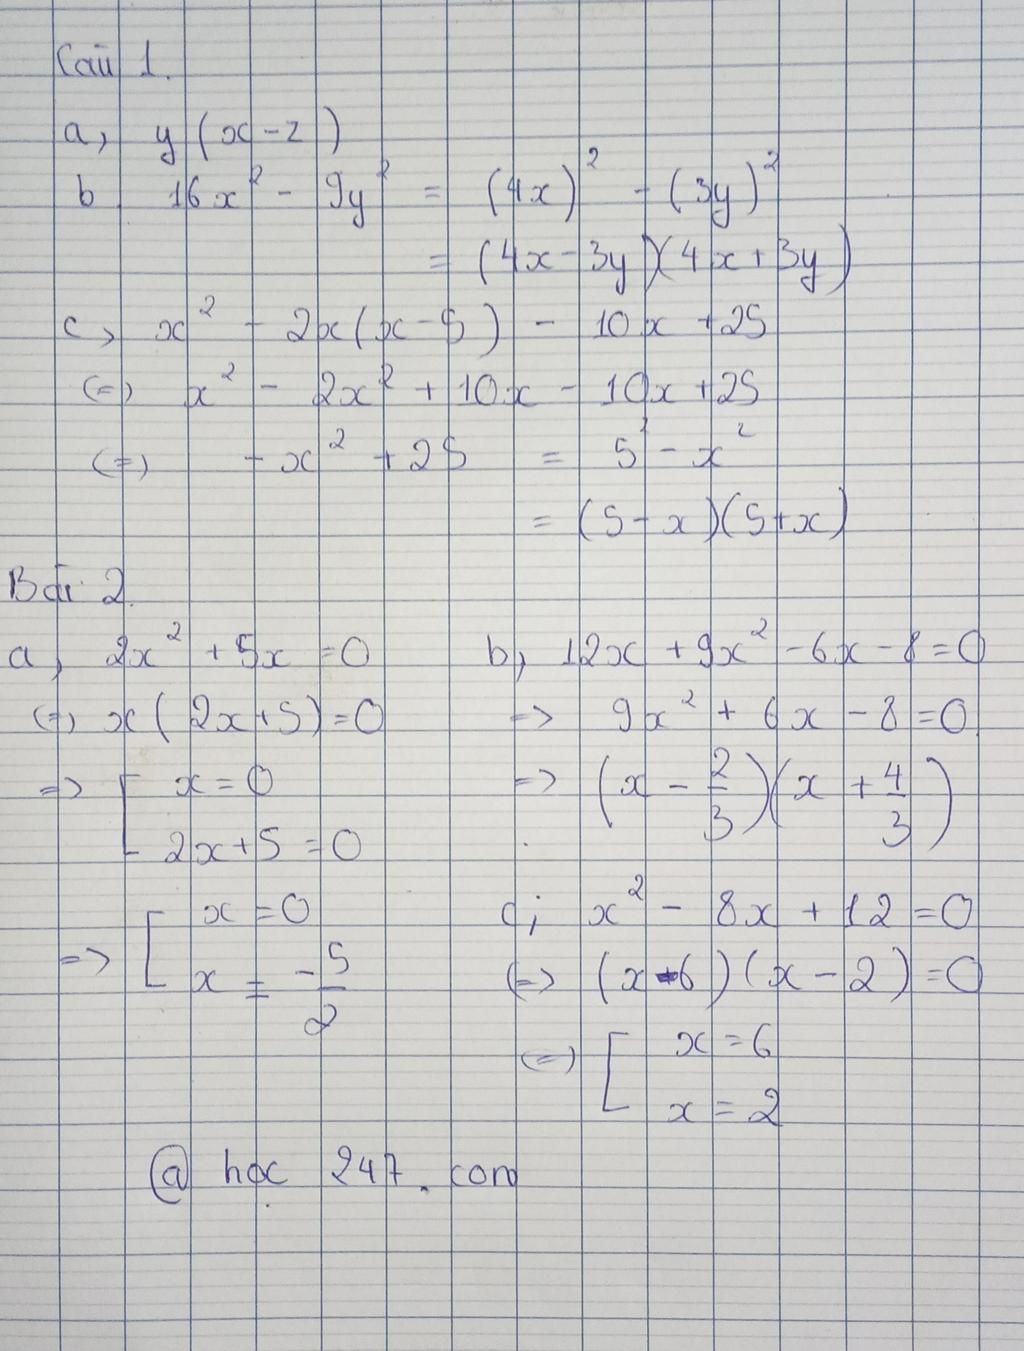 Câu 1.
a, y(x-2)
b 16x² - 9y² = (4x)² - (3y)²
= (4x-3y)(4x+3y)
c, x² - 2x(x-5) - 10x +25
(=) x² - 2x² + 10x - 10x +25
(=) -x² +25 = 5² - x²
= (5-x)(5+x)
Bài 2.
a, 2x² +5x =0
(=) x(2x+5)=0
=> [ x=0
2x+5=0
=> [ x=0
x = -5/2
b, 12x +9x² -6x-8=0
=> 9x² + 6x -8=0
=> (x - 2/3)(x + 4/3)
c, x² - 8x +12=0
(=> (x-6)(x-2)=0
(=) [ x=6
x=2
@ học 247.com